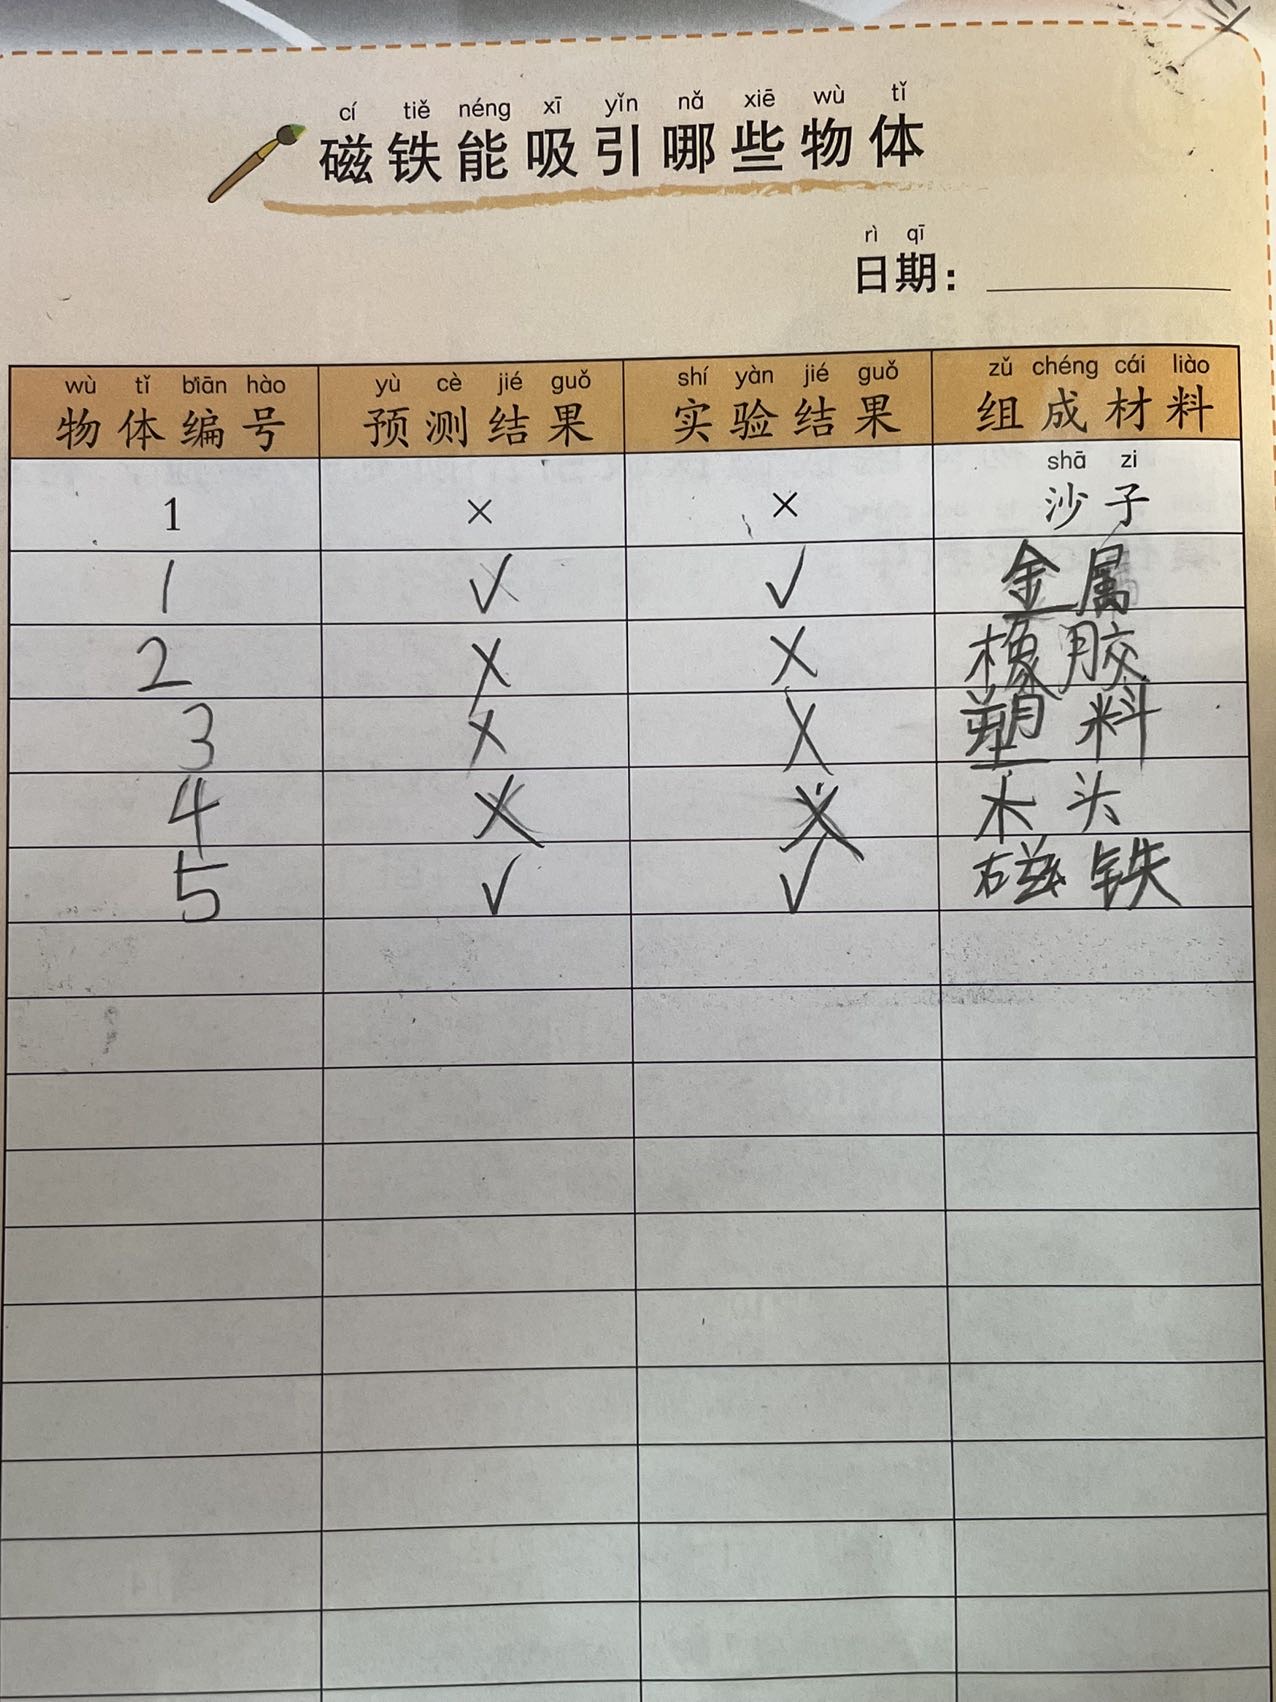 cí tiě néng xī yǐn nǎ xiē wù tǐ
磁铁能吸引哪些物体
rì qī
日期：
wù tǐ biān hào yù cè jié guǒ shí yàn jié guǒ zǔ chéng cái liào
物体编号 预测结果 实验结果 组成材料
shā zi
1 × × 沙子
1 ✓ ✓ 金属
2 × × 橡胶
3 × × 塑料
4 × × 木头
5 ✓ ✓ 磁铁